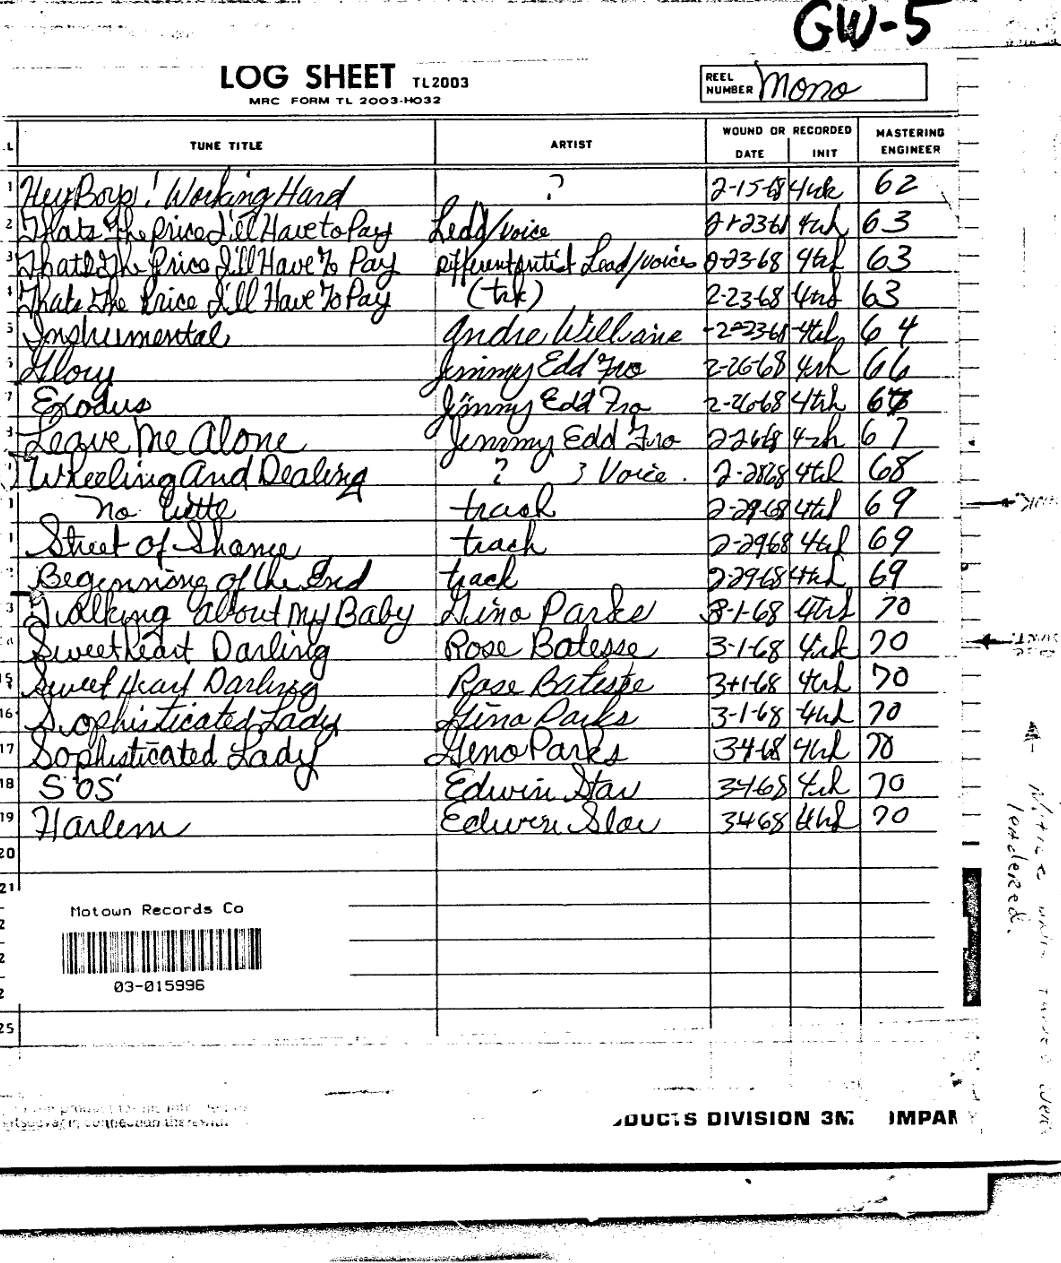 GW-5
LOG SHEET TL2003
MRC FORM TL 2003-H032
REEL NUMBER Mono
L TUNE TITLE ARTIST WOUND OR RECORDED DATE INIT MASTERING ENGINEER
1 Hey Boys! Working Hard ? 2-15-68 4trk 62
2 Thats The Price I'll Have to Pay Lead/voice 2-23-68 4trk 63
3 Thats The Price I'll Have To Pay Different artist Lead/voices 2-23-68 4trk 63
4 Thats The Price I'll Have To Pay (trk) 2-23-68 4trk 63
5 Instrumental Andre Williams 2-23-68 4trk 64
Glory Jimmy Edd Fro 2-26-68 4trk 66
7 Exodus Jimmy Edd Fro 2-26-68 4trk
Leave Me Alone Jimmy Edd Fro 2-26-68 4trk 67
Wheeling And Dealing ? 3 Voice. 2-28-68 4trk 68
No title track 2-29-68 4trk 69
Street Of Shame track 2-29-68 4trk 69
Beginning of the End track 2-29-68 4trk 69
3 Walking about My Baby Gino Parks 3-1-68 4trk 70
Sweetheart Darling Rose Batesse 3-1-68 4trk 70
15 Sweet Heart Darling Rose Batiste 3-1-68 4trk 70
16 Sophisticated Lady Gino Parks 3-1-68 4trk 70
17 Sophisticated Lady Geno Parks 3-1-68 4trk 70
18 S'OS' Edwin Star 3-1-68 4trk 70
19 Harlem Edwin Star 3-1-68 4trk 70
20
21
2
2
2
25
Motown Records Co
03-015996
DUCTS DIVISION 3M COMPAN
leadered.